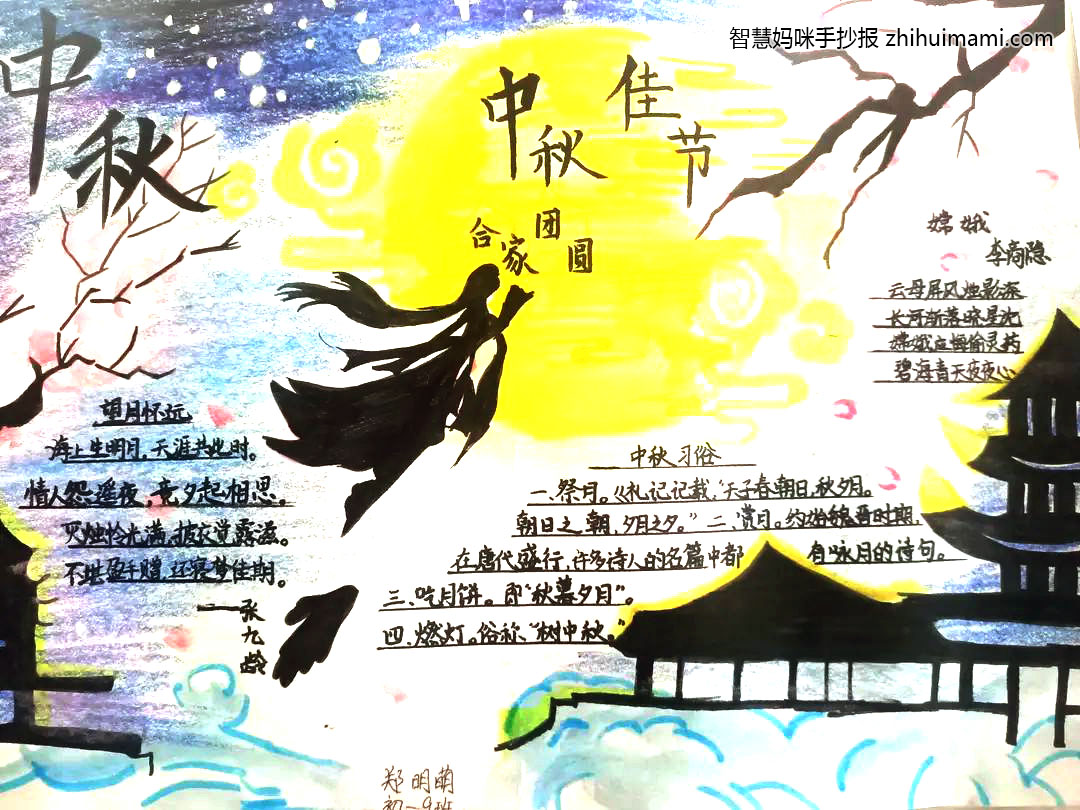 智慧妈咪手抄报 zhihuimami.com
中秋
中秋佳节
合家团圆
嫦娥
李商隐
云母屏风烛影深
长河渐落晓星沈
嫦娥应悔偷灵药
碧海青天夜夜心
望月怀远
海上生明月，天涯共此时。
情人怨遥夜，竟夕起相思。
灭烛怜光满，披衣觉露滋。
不堪盈手赠，还寝梦佳期。
——张九龄
中秋习俗
一、祭月。《礼记记载，“天子春朝日，秋夕月。
朝日之朝，夕月之夕。”二、赏月。约始魏晋时期，
在唐代盛行，许多诗人的名篇中都 有咏月的诗句。
三、吃月饼。即“秋暮夕月”。
四、燃灯。俗称“树中秋。”
郑明萌
初一9班